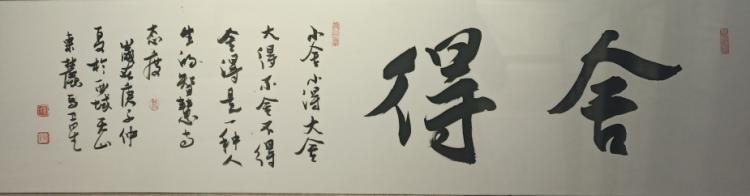 舍得
小舍小得大舍
大得不舍不得
舍得是一种人
生的智慧与
态度
岁在庚子仲
夏于西域天山
东麓